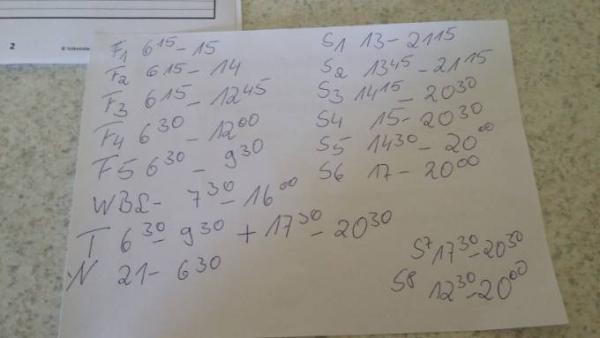 2
F1 6¹⁵ - 15
F2 6¹⁵ - 14
F3 6¹⁵ - 12⁴⁵
F4 6³⁰ - 12⁰⁰
F5 6³⁰ - 9³⁰
WBL - 7³⁰ - 16⁰⁰
T 6³⁰ - 9³⁰ + 17³⁰ - 20³⁰
N 21 - 6³⁰
S1 13 - 21¹⁵
S2 13⁴⁵ - 21¹⁵
S3 14¹⁵ - 20³⁰
S4 15 - 20³⁰
S5 14³⁰ - 20⁰⁰
S6 17 - 20⁰⁰
S7 17³⁰ - 20³⁰
S8 12³⁰ - 20⁰⁰